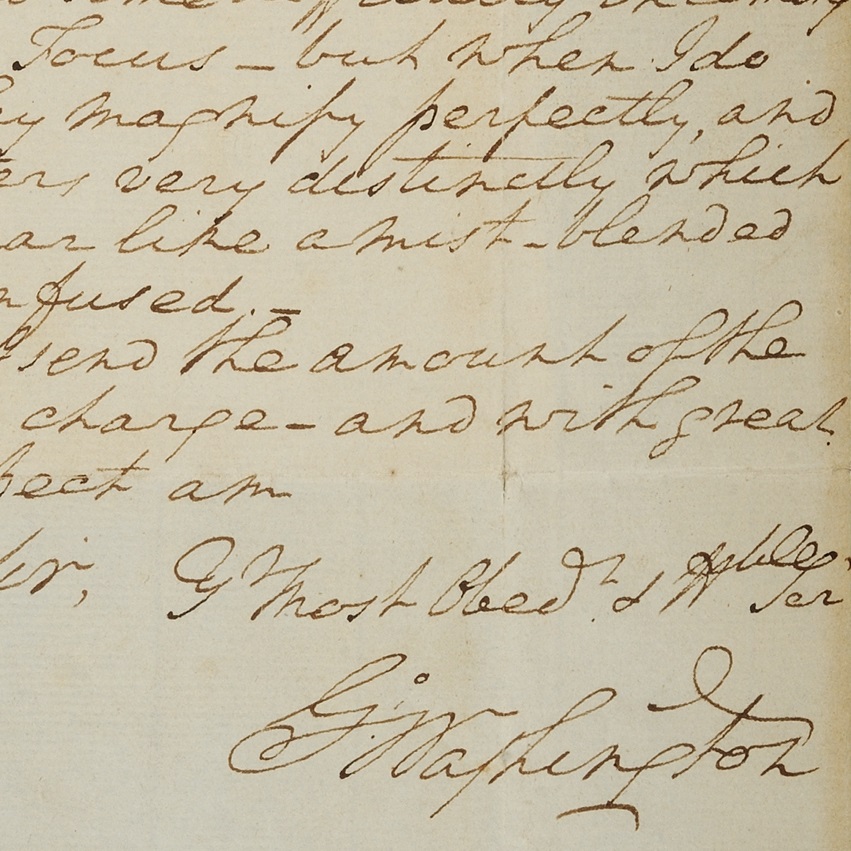 Focus – but when I do
magnify perfectly, and
ers very distinctly which
ar like a mist – blended
nfused. –
send the amount of the
charge – and with great
pect am
Sir, Yr Most Obedt & Hble Ser
Go: Washington